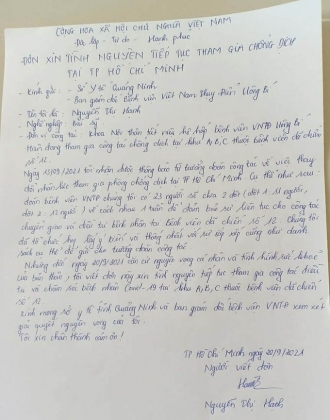 CỘNG HÒA XÃ HỘI CHỦ NGHĨA VIỆT NAM
Độc lập - Tự do - Hạnh phúc
ĐƠN XIN TÌNH NGUYỆN TIẾP TỤC THAM GIA CHỐNG DỊCH
TẠI TP HỒ CHÍ MINH
- Kính gửi: - Sở Y tế Quảng Ninh
- Ban giám đốc bệnh viện Việt Nam Thụy Điển Uông Bí
- Tên tôi là: Nguyễn Thị Hạnh
- Nghề nghiệp: Bác sỹ
- Đơn vị công tác: Khoa Nội thận tiết niệu bệnh viện VNTĐ Uông Bí
Hiện đang tham gia công tác chống dịch tại khu A, B, C thuộc bệnh viện dã chiến
số 12.
Ngày 15/09/2021 tôi nhận được thông báo từ trưởng đoàn công tác về việc thay
đổi nhân lực tham gia phòng chống dịch tại TP Hồ Chí Minh. Cụ thể như sau:
đoàn bệnh viện VNTĐ chúng tôi có 23 người sẽ chia 2 đợt (đợt 1: 11 người,
đợt 2: 12 người) về cách nhau 1 tuần để đảm bảo sự liên tục cho công tác
chuyên giao và điều trị bệnh nhân tại bệnh viện dã chiến số 12. Chúng tôi
đã tổ chức họp lấy ý kiến và thống nhất và sự sắp xếp cũng như danh
sách cụ thể đã gửi cho trưởng đoàn công tác.
Nhưng đến ngày 20/9/2021 căn cứ nguyện vọng cá nhân và tình hình sức khỏe
của bản thân, tôi viết đơn này xin tình nguyện tiếp tục tham gia công tác điều
trị và chăm sóc bệnh nhân Covid-19 tại khu A, B, C thuộc bệnh viện dã chiến
số 12.
Kính mong sở y tế tỉnh Quảng Ninh và ban giám đốc bệnh viện VNTĐ xem xét
giải quyết nguyện vọng của tôi.
Tôi xin chân thành cảm ơn!
TP Hồ Chí Minh ngày 20/9/2021
Người viết đơn
Hạnh
Nguyễn Thị Hạnh